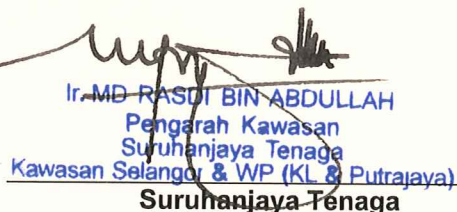 Ir. MD RASDI BIN ABDULLAH
Pengarah Kawasan
Suruhanjaya Tenaga
Kawasan Selangor & WP (KL & Putrajaya)
Suruhanjaya Tenaga